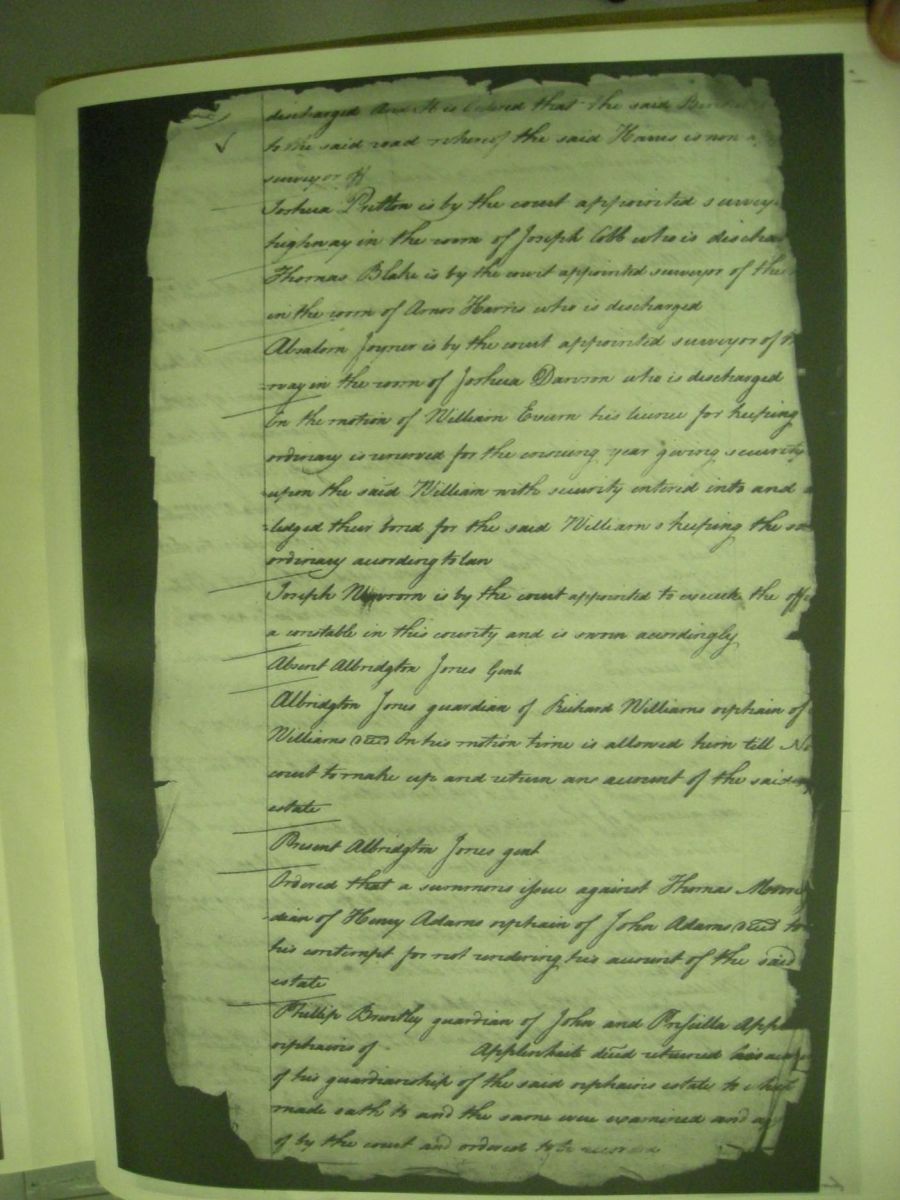 discharged And It is Ordered that the said
to the said road whereof the said Harris is now
surveyor
Joshua Pretlow is by the court appointed survey
highway in the room of Joseph Cobb who is discha
Thomas Blake is by the court appointed surveyor of the
in the room of Amos Harris who is discharged
Absalom Joyner is by the court appointed surveyor of
way in the room of Joshua Dawson who is discharged
On the motion of William Evurn his licence for keeping
ordinary is renewed for the ensuing year giving security
upon the said William with security entered into and a
ledged their bond for the said Williams keeping the sa
ordinary according to law
Joseph is by the court appointed to execute the offi
a constable in this county and is sworn accordingly
Absent Albridgton Jones Gent
Albridgton Jones guardian of Richard Williams orphain of
Williams decd On his motion time is allowed him till No
court to make up and return an account of the said
estate
Present Albridgton Jones gent
Ordered that a summons issue against Thomas
dian of Henry Adams orphain of John Adams decd to
his contempt for not rendering his account of the said
estate
Phillip Brantley guardian of John and Priscilla Appl
orphains of Applewhaite decd returned his
of his guardianship of the said orphains estate to which
made oath to and the same were examined and a
of by the court and ordered to be recorded